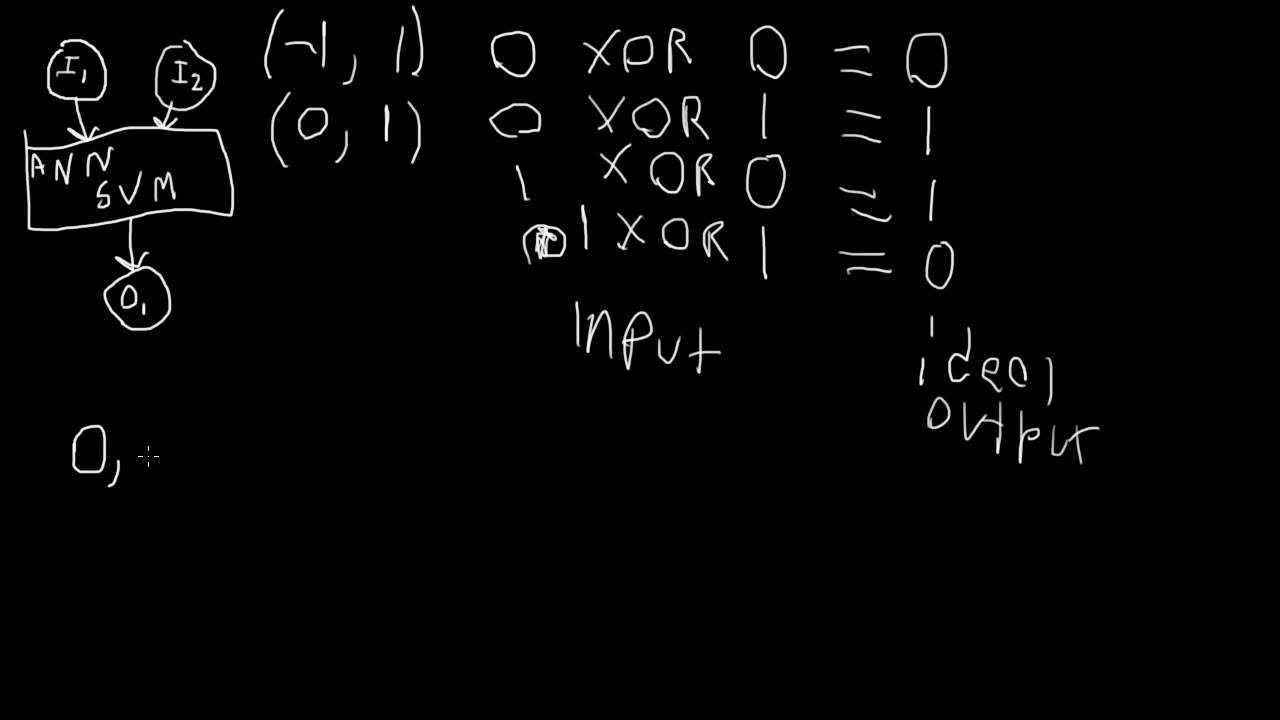 I1 I2
ANN
SVM
O1
(-1, 1)
(0, 1)
0 XOR 0 = 0
0 XOR 1 = 1
1 XOR 0 = 1
1 XOR 1 = 0
Input
ideal
output
0,